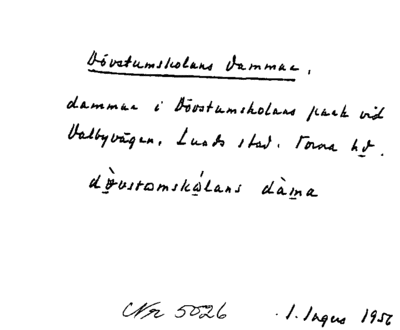 Dövstumskolans Dammar.
dammar i Dövstumskolans park vid
Dalbyvägen, Lunds stad. Torna hd.
dø̀vstɷmskɷ́lans dàma
Nr 5026 I. Ingers 1956